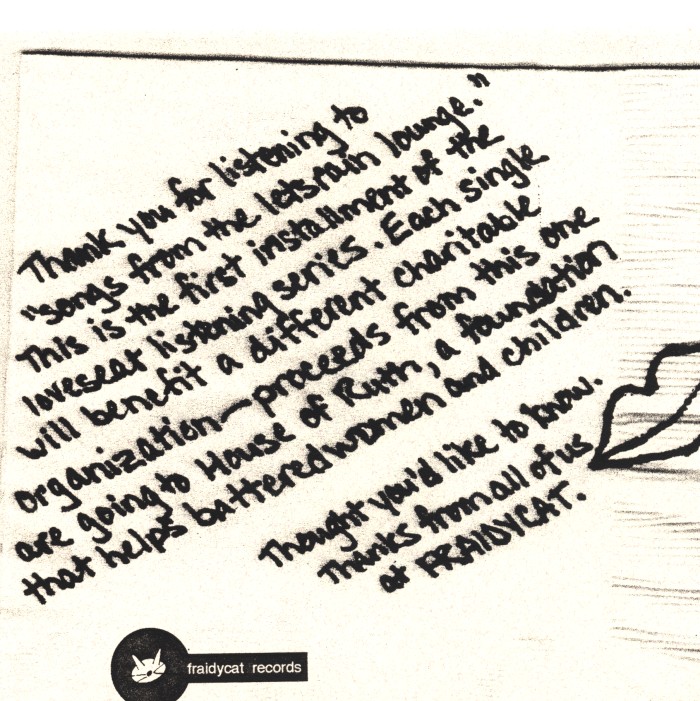 Thank you for listening to
"songs from the letsrain lounge."
This is the first installment of the
loveseat listening series. Each single
will benefit a different charitable
organization—proceeds from this one
are going to House of Ruth, a foundation
that helps battered women and children.
Thought you'd like to know.
Thanks from all of us
at FRAIDYCAT.
fraidycat records